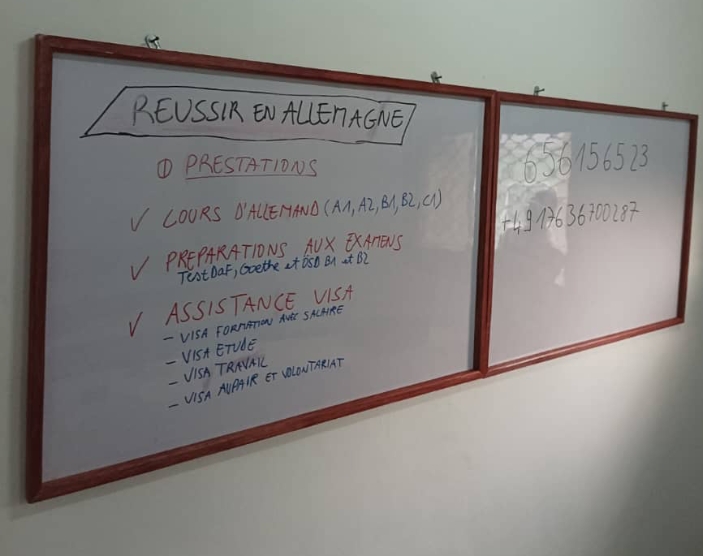 REUSSIR EN ALLEMAGNE
① PRESTATIONS
✓ COURS D'ALLEMAND (A1, A2, B1, B2, C1)
✓ PREPARATIONS AUX EXAMENS
TestDaF, Goethe et ÖSD B1 et B2
✓ ASSISTANCE VISA
– VISA FORMATION AVEC SALAIRE
– VISA ETUDE
– VISA TRAVAIL
– VISA AUPAIR ET VOLONTARIAT
656156523
+4917636700287